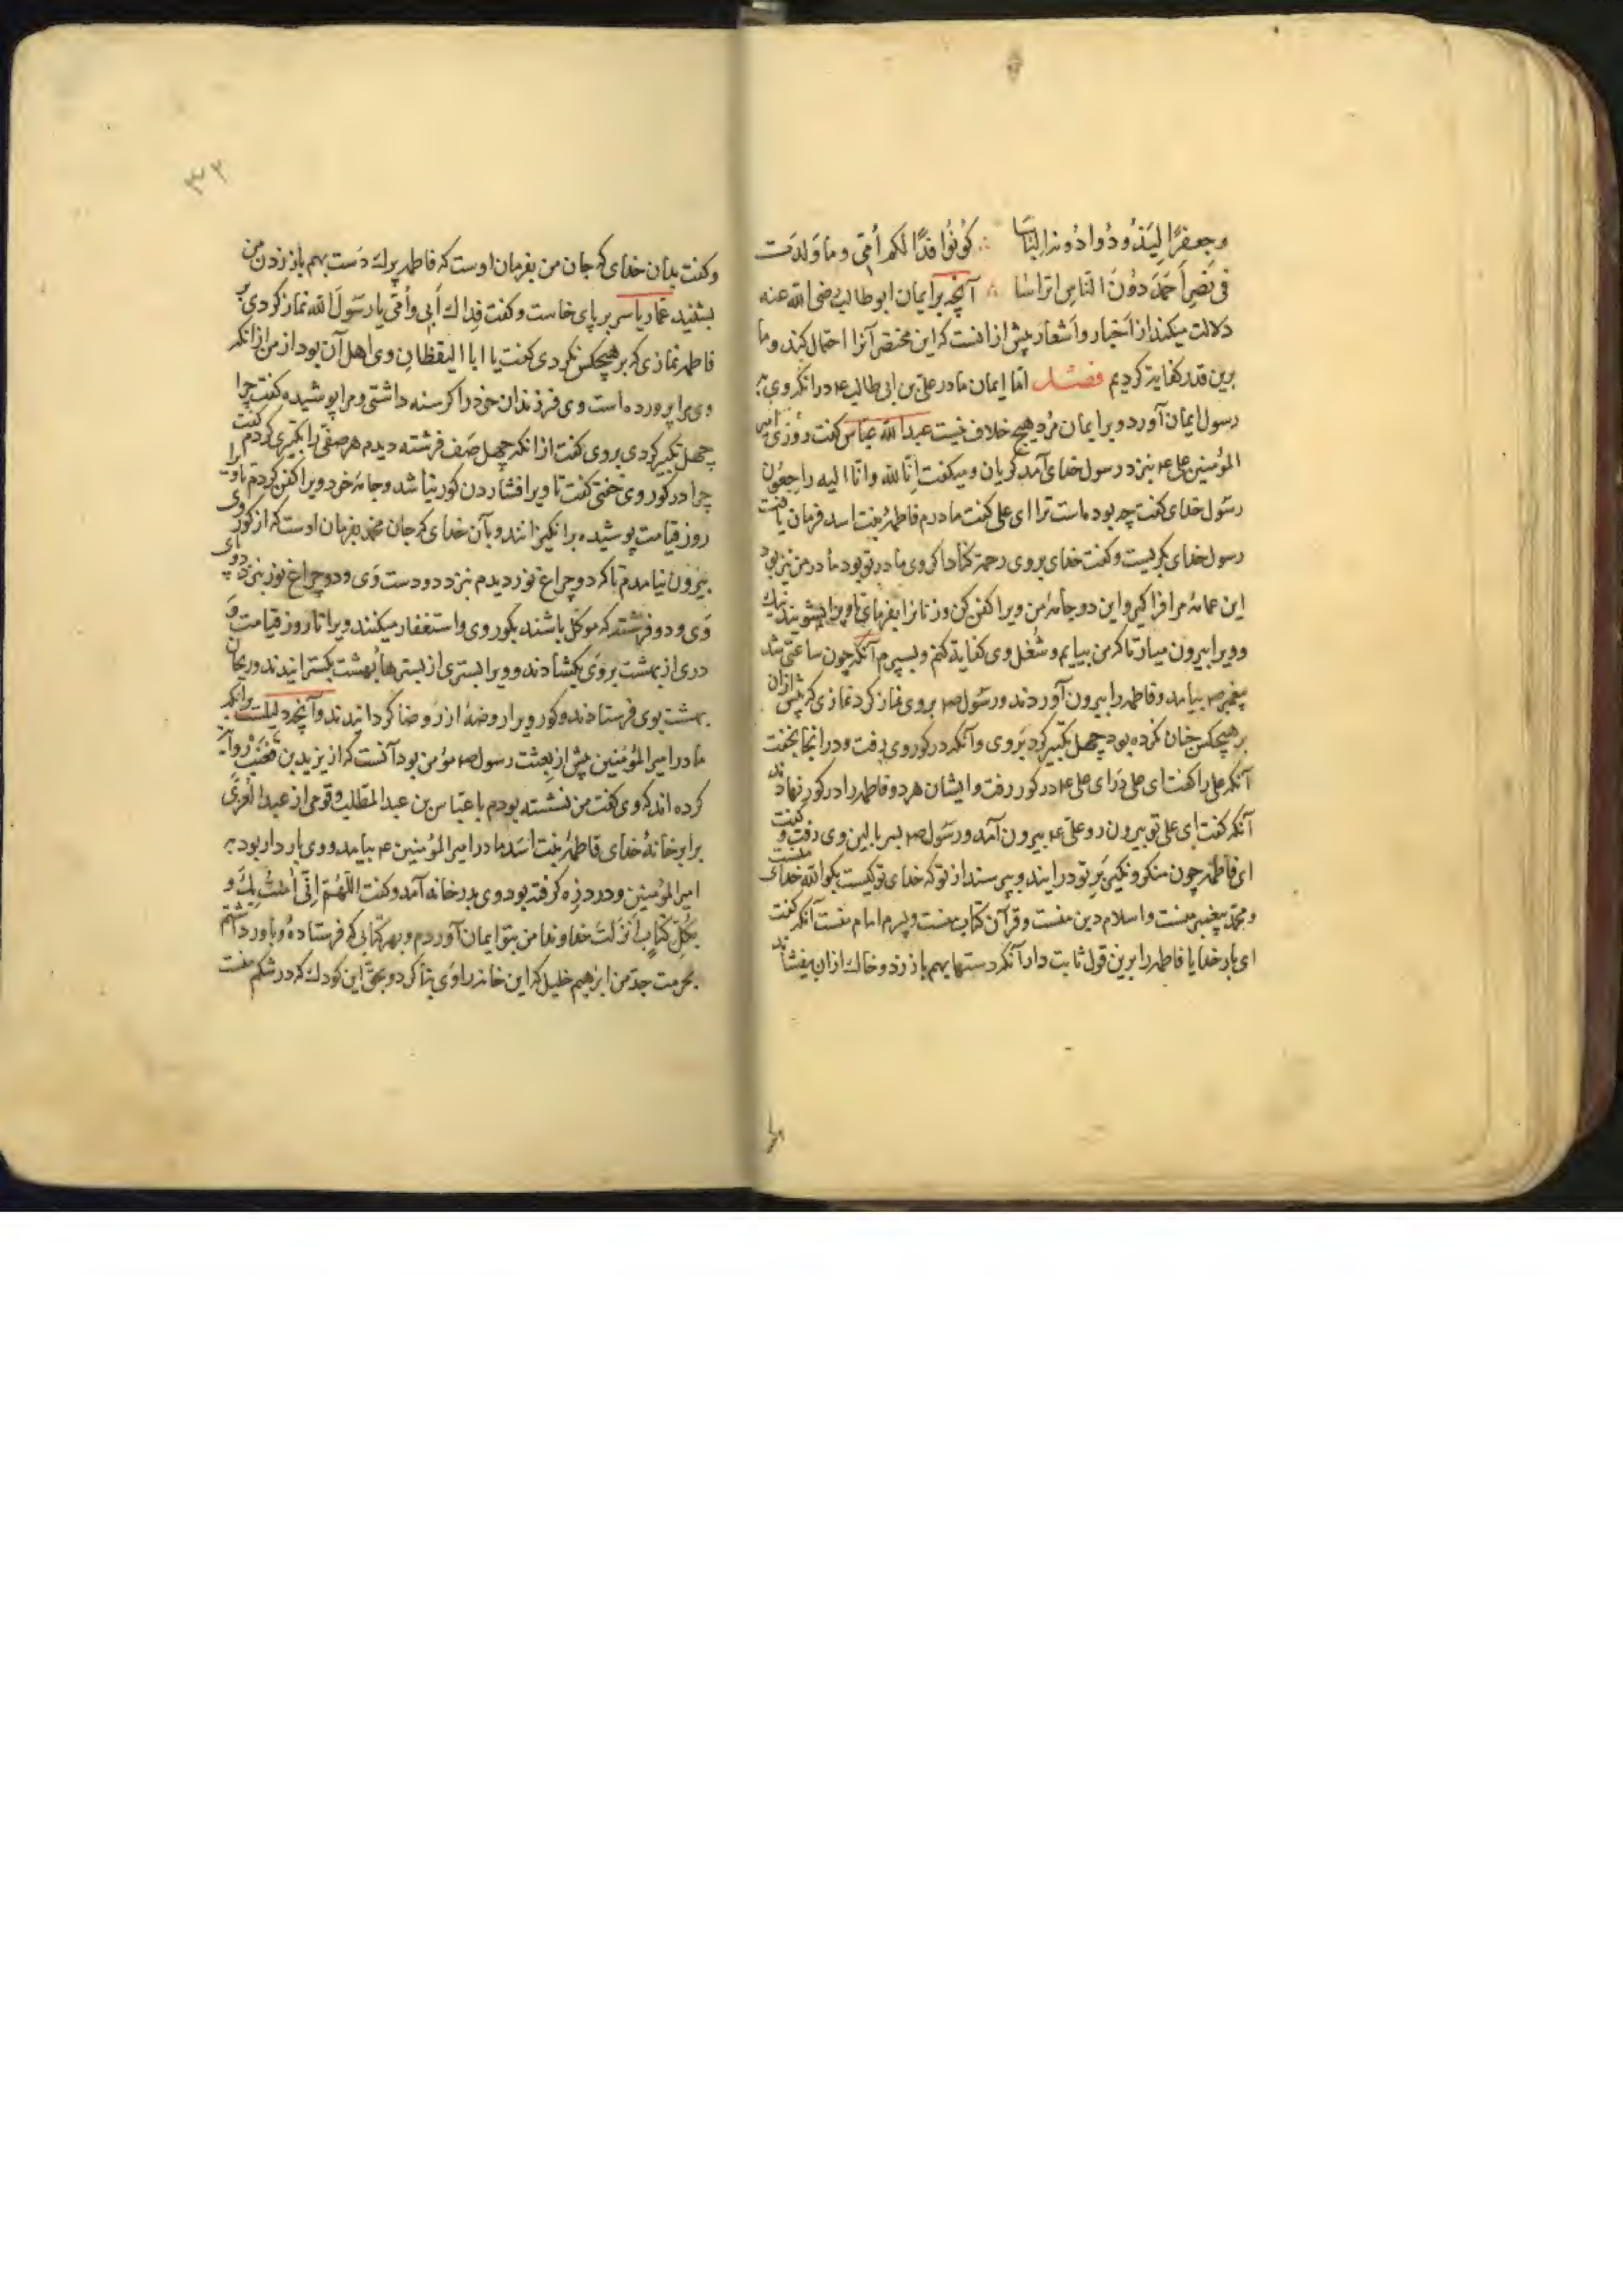 وجعفرًا لیذودوا دونه الناسا ∴ کونوا فدًا لکم أمّی وما ولدت
فی نصر أحمد دون الناس اتراسا ∴ آنچه بر ایمان ابوطالب رضی الله عنه
دلالت میکند از أخبار وأشعار پیش از آنست که این مختصر آنرا احتمال کند وما
برین قدر کفایة کردیم فصل امّا ایمان مادر علیّ بن ابی طالب ع در آنکه وی به
رسول ایمان آورد و بر ایمان مرد هیچ خلاف نیست عبدالله عباس کفت روزی امیر
المؤمنین علی ع بنزد رسول خدای آمد کریان و میکفت إنّا لله وانّا الیه راجعون
رسول خدای کفت چه بوده است ترا ای علی کفت مادرم فاطمهٔ بنت اسد فرمان یافت
رسول خدای بکریست و کفت خدای بر وی رحمة کناد اکر وی مادر تو بود مادر من نیز بود
این عمامهٔ مرا فرا کیر و این دو جامهٔ من ویرا کفن کن و زنانرا بفرمای تا ویرا بشویند نیک
و ویرا بیرون میار تا که من بیایم و شغل وی کفایة کنم و بسپرم آنکه چون ساعتی شد
پیغمبر ص بیامد و فاطمه را بیرون آوردند و رسول ص بر وی نماز کرد نمازی که پیش از آن
بر هیچکس چنان نکرده بود چهل تکبیر کرد بر وی و آنکه در کور وی رفت و در آنجا بخفت
آنکه علی را کفت ای علی درآی علی ع در کور رفت و ایشان هر دو فاطمه را در کور نهادند
آنکه کفت ای علی تو بیرون رو علی ع بیرون آمد و رسول ص بسر بالین وی رفت و کفت
ای فاطمه چون منکر و نکیر بر تو درآیند و بپرسند از تو که خدای تو کیست بکو الله خدای منست
و محمّد پیغمبر منست و اسلام دین منست و قرآن کتاب منست و پسرم امام منست آنکه کفت
ای بار خدایا فاطمه را برین قول ثابت دار آنکه دستها بهم باز زد و خاک از آن بیفشاند
۳۲
و کفت بدان خدای که جان من بفرمان اوست که فاطمه پراک دست بهم باز زدن من
بشنید عمّار یاسر بر پای خاست و کفت فداك أبی وأمّی یا رسول الله نماز کردی بر
فاطمه نمازی که بر هیچکس نکردی کفت یا ابا الیقظان وی اهل آن بود از من از آنکه
وی مرا پرورده است وی فرزندان خود را کرسنه داشتی و مرا پوشیده کفت چرا
چهل تکبیر کردی بر وی کفت از آنکه چهل صف فرشته دیدم هر صفّی را تکبیری کردم کفت
چرا در کور وی خفتی کفت تا ویرا فشاردن کور نباشد و جامهٔ خود ویرا کفن کردم تا ویرا
روز قیامت پوشیده برانکیزانند و بآن خدای که جان محمّد بفرمان اوست که از کور وی
بیرون نیامدم تا که دو چراغ نور دیدم بنزد دو دست وی و دو چراغ نور بنزد دو پای
وی و دو فرشته که موکل باشند بکور وی و استغفار میکنند ویرا تا روز قیامت و
دری از بهشت بر وی بکشادند و ویرا بستری از بسترهاء بهشت بکسترانیدند و ریحان
بهشت بوی فرستادند و کور ویرا روضهٔ از روضا کردانیدند و آنچه دلیلست بر آنکه
مادر امیر المؤمنین پیش از بعثت رسول ص مؤمن بود آنست که از یزید بن قعنب روایة
کرده اند که وی کفت من نشسته بودم با عبّاس بن عبد المطّلب و قومی از عبد العزّی
برابر خانهٔ خدای فاطمهٔ بنت أسد مادر امیر المؤمنین ع بیامد و وی باردار بود به
امیر المؤمنین و درد زه کرفته بود وی بدر خانه آمد و کفت اللّهمّ إنّی أمنت بك و
بکلّ کتاب أنزلت خداوندا من بتو ایمان آوردم و بهر کتابی که فرستادهٔ و باور داشتم
بحرمت جدّ من ابرهیم خلیل که این خانه را وی بنا کرد و بحقّ این کودك که در شکم منست